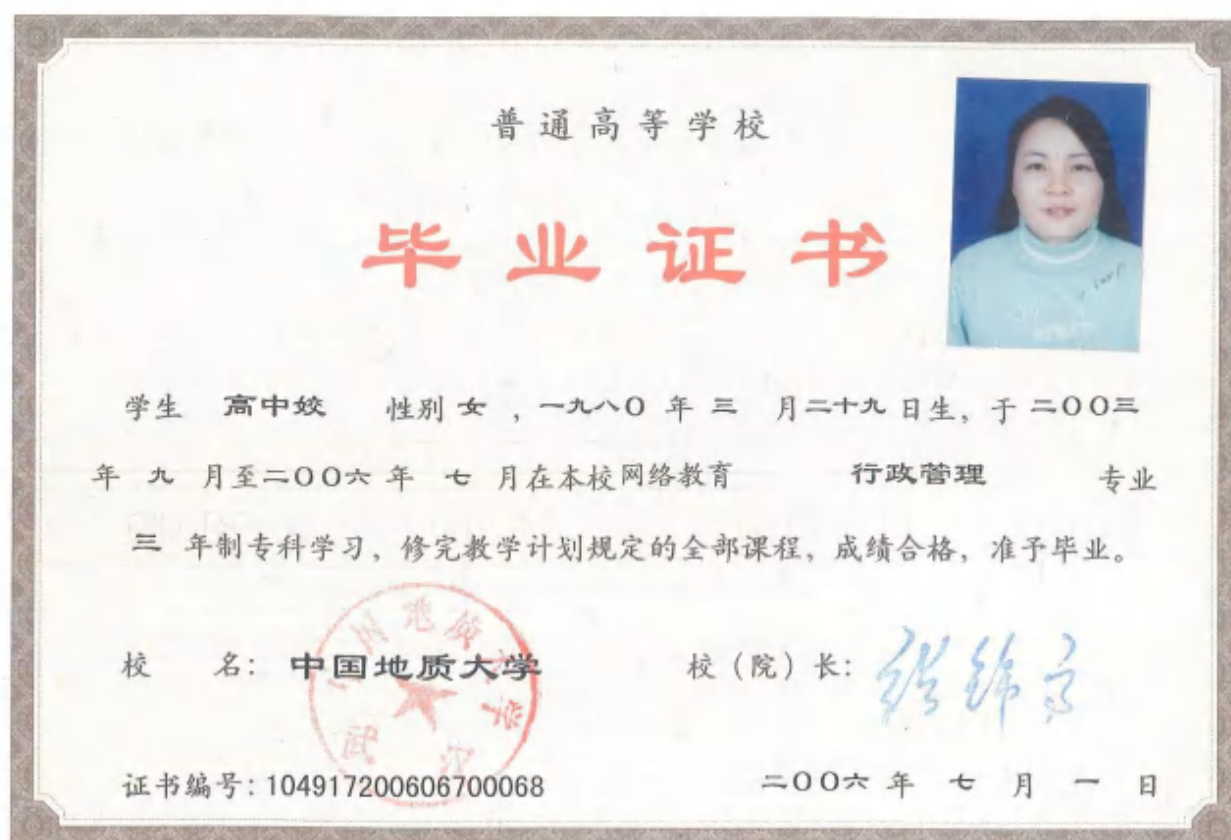 普通高等学校
毕业证书
学生 高中姣 性别 女 ，一九八〇 年 三 月二十九 日生，于 二〇〇三
年 九 月至二〇〇六 年 七 月在本校网络教育 行政管理 专业
三 年制专科学习，修完教学计划规定的全部课程，成绩合格，准予毕业。
校 名：中国地质大学 校（院）长：张锦高
中国地质大学
武汉
证书编号：104917200606700068 二〇〇六 年 七 月 一 日